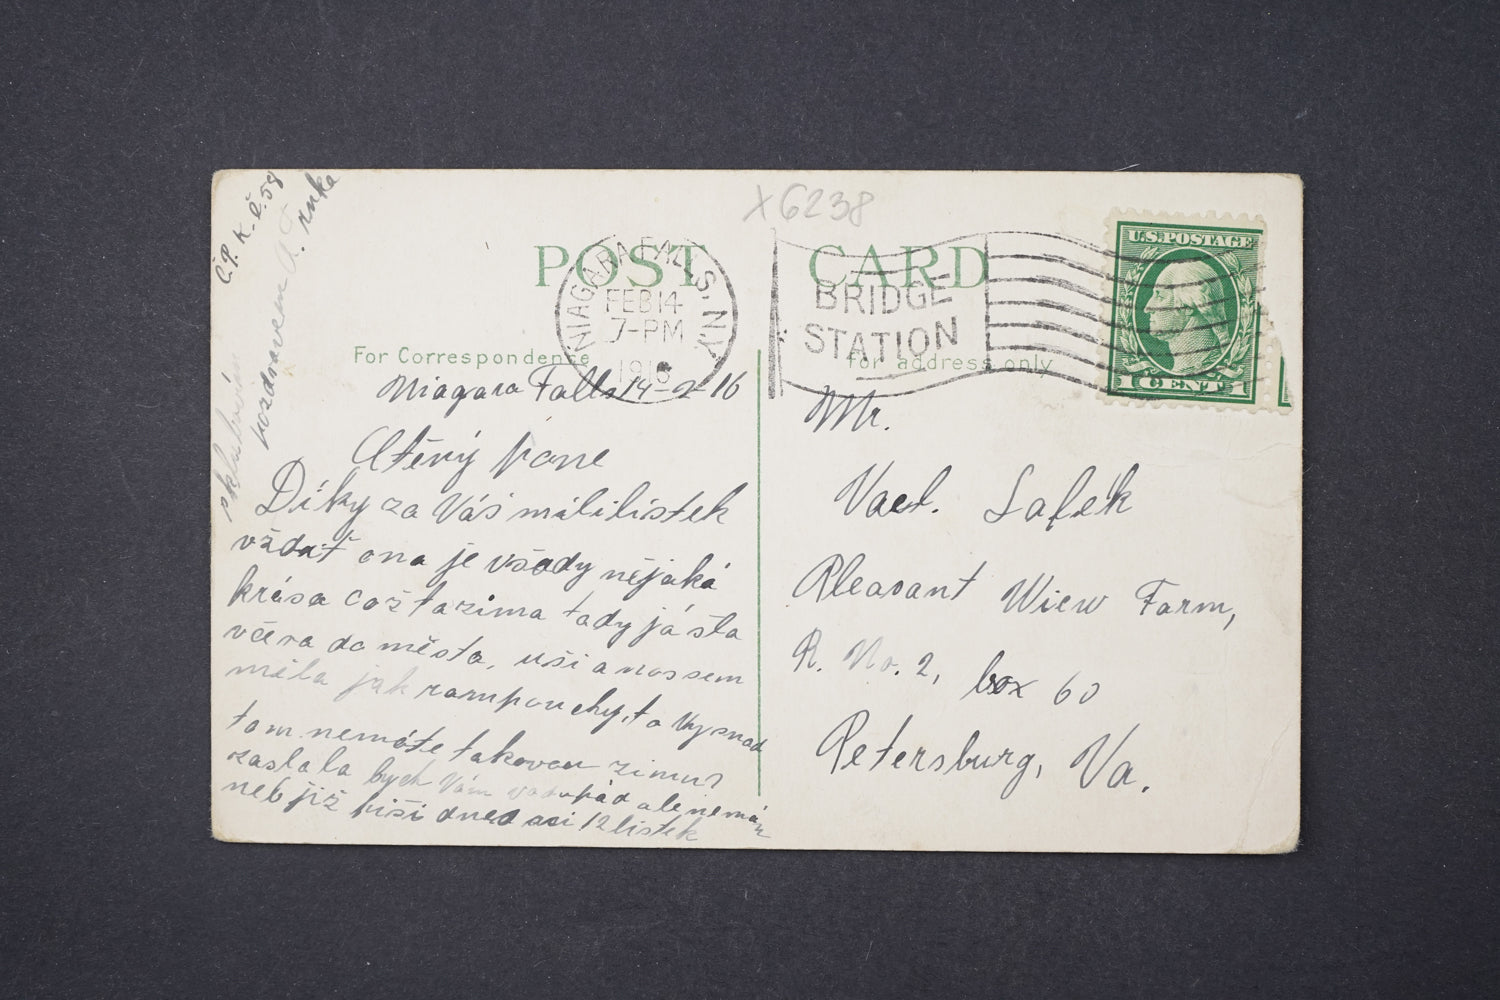 Č.P.K. č. 58
X6238
POST CARD
NIAGARA FALLS, N.Y.
FEB 14
7-PM
1916
BRIDGE
STATION
U.S. POSTAGE
1 CENT 1
For Correspondence
for address only
Niagara Falls 14-2-16
Ctěný pane
Díky za Váš milílístek
vždať ona je všady nějaká
krása což ta zima tady já šla
včera do města, uši a nos sem
měla jak rampouchy, to Vy snad
tam nemáte takovou zimu?
zaslala bych Vám vodopád ale nemám
neb již píši dnes asi 12 lístek
pozdravem A. F. rnka
Mr.
Vacl. Lafek
Pleasant Wiew Farm,
R. No. 2, box 60
Petersburg, Va.